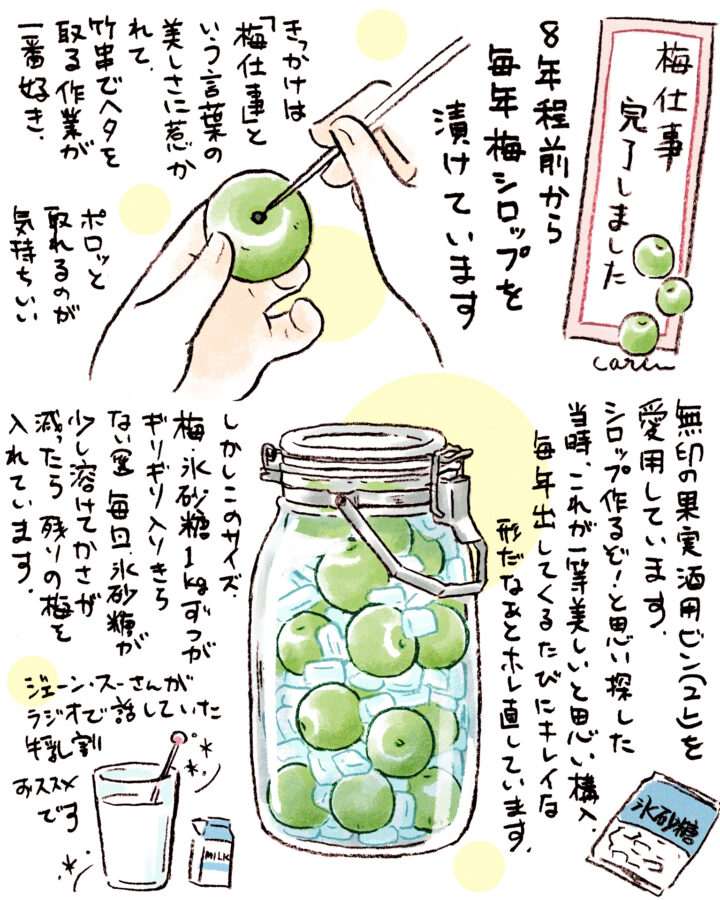 梅仕事
完了しました
carin
8年程前から
毎年梅シロップを
漬けています
きっかけは
「梅仕事」と
いう言葉の
美しさに惹か
れて、
竹串でヘタを
取る作業が
一番好き、
ポロッと
取れるのが
気持ちいい
無印の果実酒用ビン(2L)を
愛用しています。
シロップ作るぞ!と思い探した
当時、これが一等美しいと思い購入、
毎年出してくるたびにキレイな
形だなぁとホレ直しています。
しかしこのサイズ、
梅・氷砂糖1kgずつが
ギリギリ入りきら
ない為 毎回、氷砂糖が
少し溶けてかさが
減ったら 残りの梅を
入れています。
氷砂糖
ジェーン・スーさんが
ラジオで話していた
牛乳割
おススメ
です
MILK